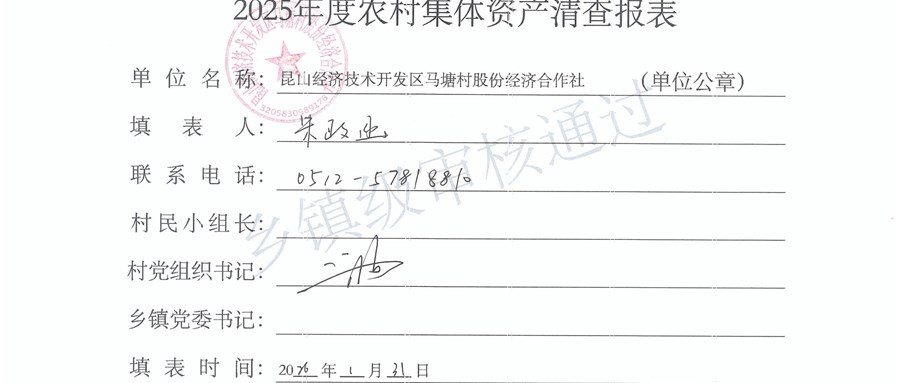 2025年度农村集体资产清查报表
单 位 名 称: 昆山经济技术开发区马塘村股份经济合作社 (单位公章)
填 表 人:
联 系 电 话: 0512-57818810
村民小组长:
村党组织书记:
乡镇党委书记:
填 表 时 间: 2026 年 1 月 31 日
乡镇级审核通过